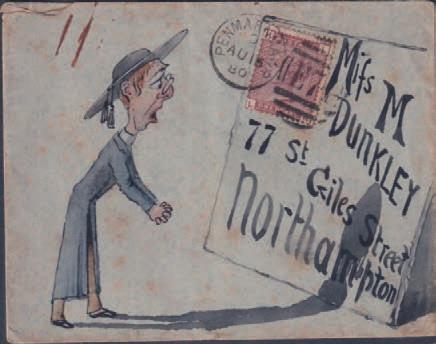 PENMA
AU 15
80
Mifs M
DUNKLEY
77 St
Giles Street
Northampton